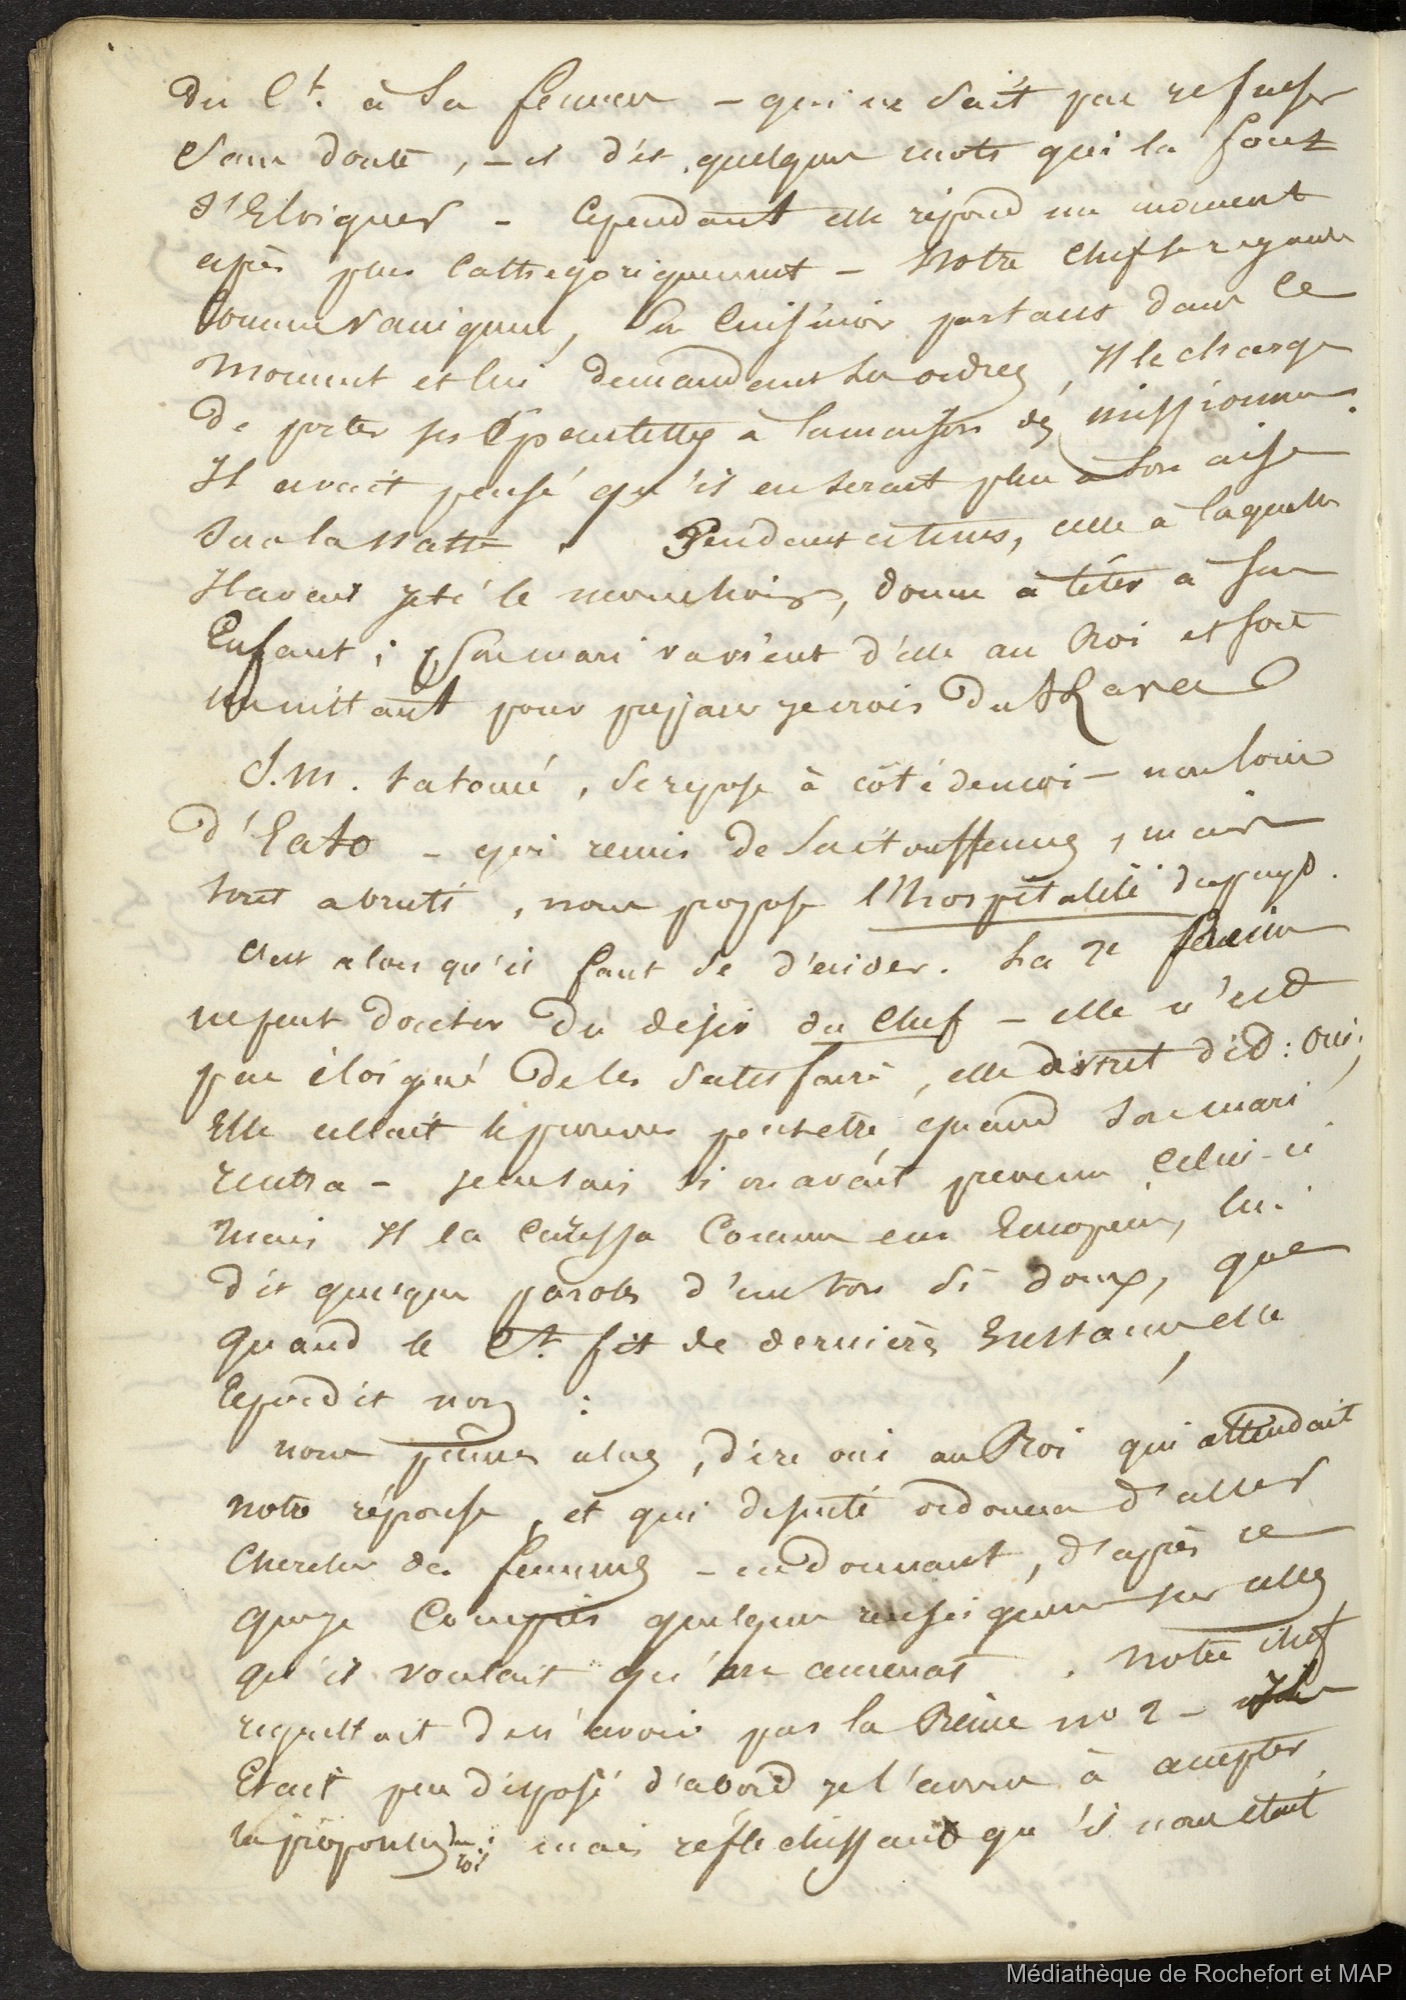 du Ct. à sa femme – qui ne sait pas refuser
sans doute, – il dit quelques mots qui la font
s'Eloigner – Cependant elle répond un moment
après plus Cathegoriquement – Notre Chef se regarde
Comme vainqueur, Son Cuisinier partant dans ce
moment et lui demandant ses ordres, Il le charge
De porter ses Epaulettes à la maison des missionnaires.
Il avait pensé qu'il en serait plus à son aise
Sur la natte. Pendant ce tems, celle à laquelle
Il avait jeté le mouchoir, donne à têter à son
Enfant; Son mari va vient d'elle au Roi et sort
un instant pour préparer je crois du Kava
S. M. tatoué, se repose à côté de moi – non loin
d'Eato – qui remis de son étouffement, mais
tout abruti, nous propose l'hospitalité du pays.
C'est alors qu'il faut se d'ecider. La 2e femme
ne peut douter du desir du Chef – elle n'est
pas éloigné de les satisfaire, elle disait d'ed: oui;
Elle allait le prouver peut etre quand Son mari
rentra – je ne sais si on avait prevenu Celui-ci
Mais Il la Caressa Comme un Européen, lui
dit quelques paroles d'un ton si doux, que
quand le Ct. fit de dernières Instances, elle
Repondit non :
nous pumes alors, dire oui au Roi qui attendait
notre réponse, et qui de suite ordonna d'aller
Chercher des femmes – en donnant, d'après ce
que je Compris quelques renseignemens sur celles
qu'il voulait qu'on amenat. Notre chef
regrettait de n'avoir pas la Reine no 2 –
Etait peu disposé d'abord je l'avoue à accepter
la proposition du roi; mais réfléchissant qu'il nous était
Médiathèque de Rochefort et MAP